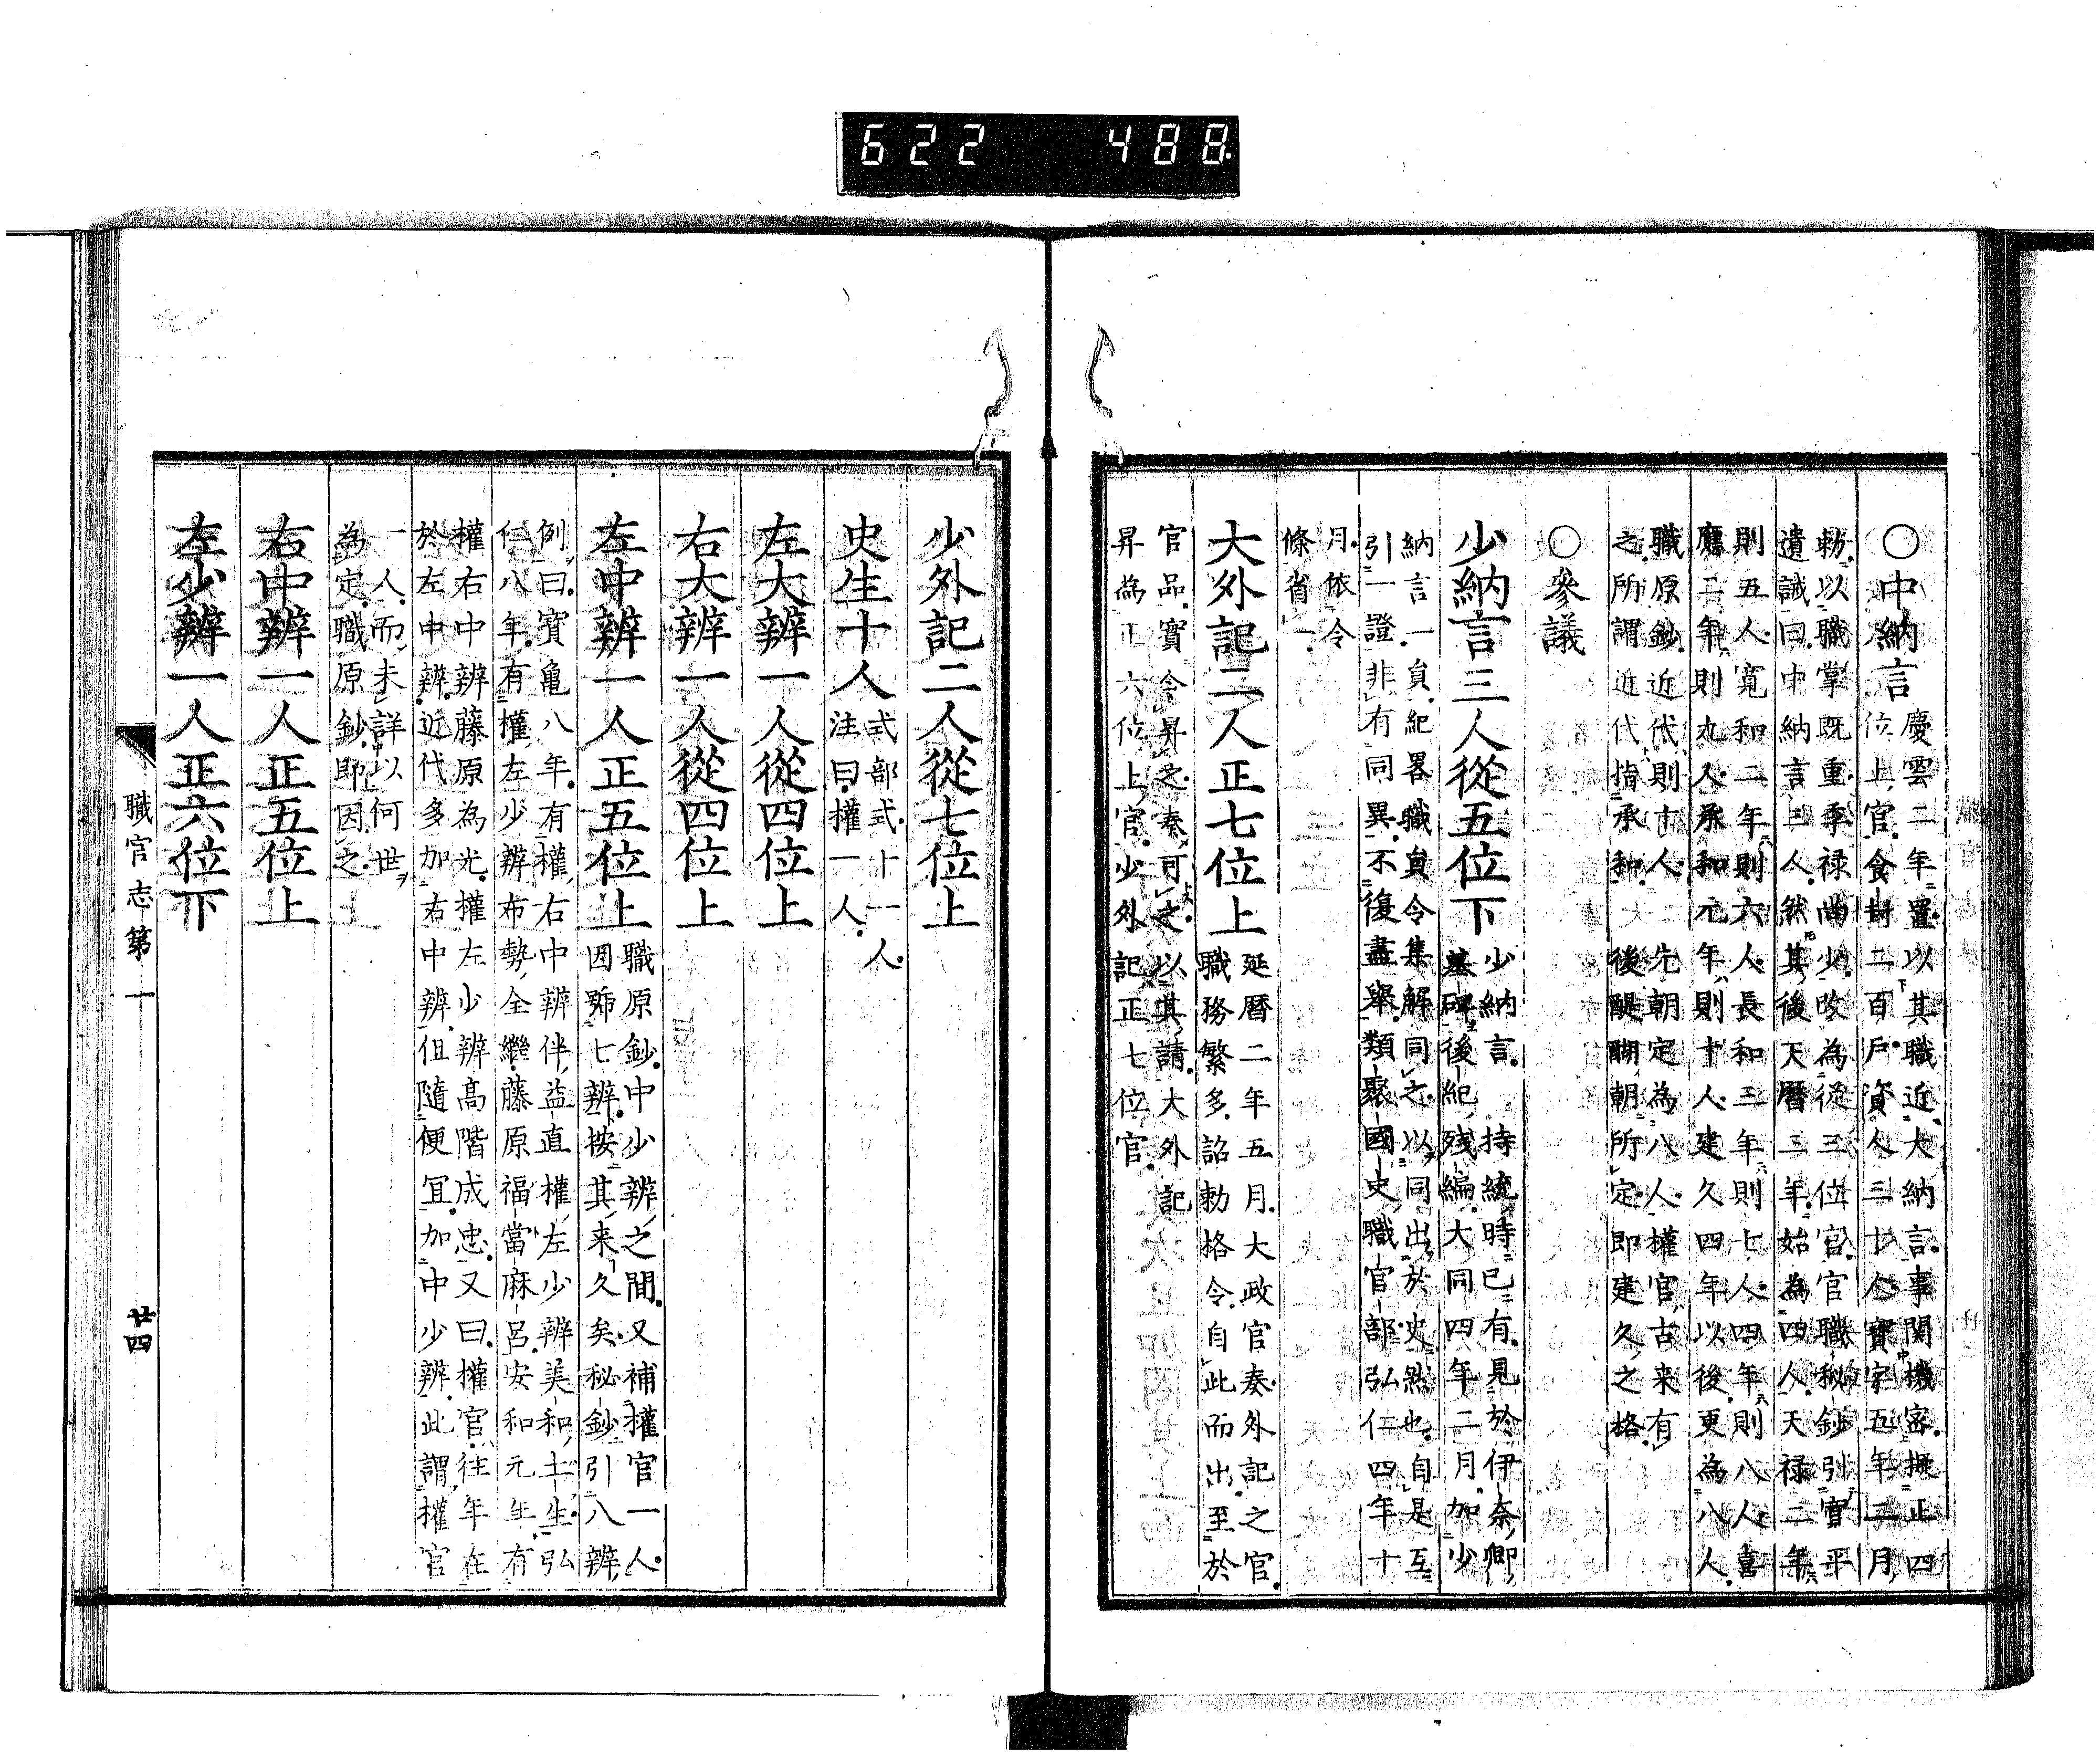 622 488
○中納言
慶雲二年置以其職近大納言事関機密擬正四
位上官食封二百戸資人三十人寶字五年二月
勅以職掌既重季禄尚少改為従三位官官職秘鈔引寛平
遺誡曰中納言三人然其後天暦三年始為四人天禄二年
則五人寛和二年則六人長和三年則七人四年則八人喜
應二年則九人承和元年則十人建久四年以後更為八人
職原鈔近代則十人 先朝定為八人權官古来有
之所謂近代指承和 後醍醐朝所定即建久之格
○參議
少納言三人從五位下
少納言 持統時已有見於伊奈卿
墓碑後紀残編大同四年二月加少
納言一員紀畧職員令集解同之以同出於史然也自是互
引一證非有同異不復盡舉類聚國史職官部弘仁四年十
月依令
條省一
大外記二人正七位上
延暦二年五月大政官奏外記之官
職務繁多詔勅格令自此而出至於
官品實合昇之奏可之以其請大外記
昇為正六位上官少外記正七位官
少外記二人從七位上
史生十人
式部式十一人
注曰權一人
左大辨一人從四位上
右大辨一人從四位上
左中辨一人正五位上
職原鈔中少辨之間又補權官一人
因號七辨按其来久矣秘鈔引八辨
例曰寳亀八年有權右中辨伴益直權左少辨美和土生弘
仁八年有權左少辨布勢全繼藤原福當麻呂安和元年有
權右中辨藤原為光權左少辨高階成忠又曰權官往年在
於左中辨近代多加右中辨但隨便冝加中少辨此謂權官
一人而未詳以何世
為定職原鈔即因之
右中辨一人正五位上
左少辨一人正六位下
職官志第一
廿四